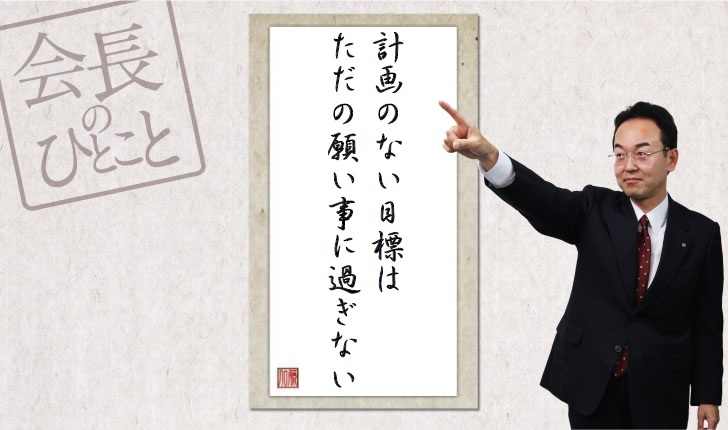 会長
の
ひとこと
計画のない目標は
ただの願い事に過ぎない